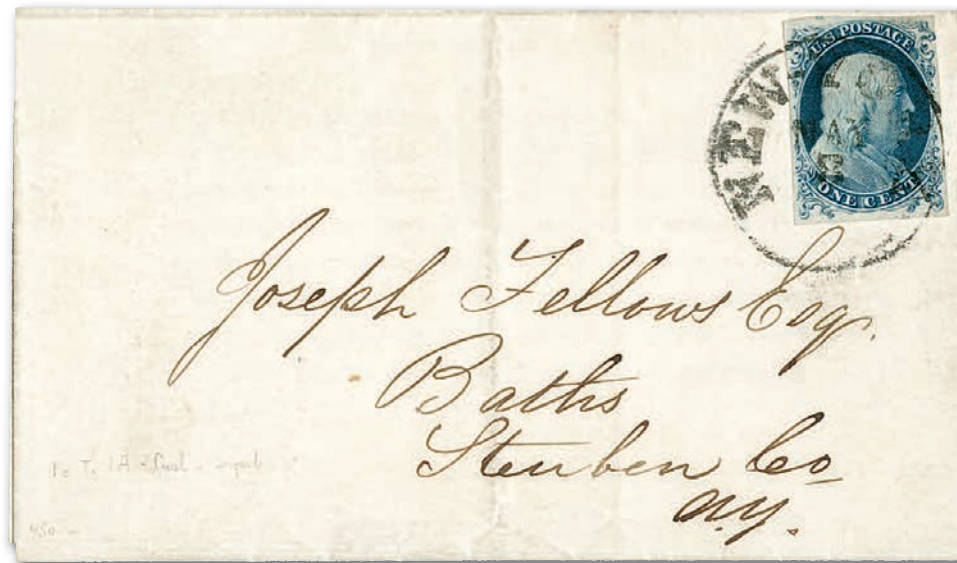 U.S. POSTAGE
ONE CENT
NEW YO
MAY
Joseph Fellows Esq.
Baths
Steuben Co
N.Y.
450 -